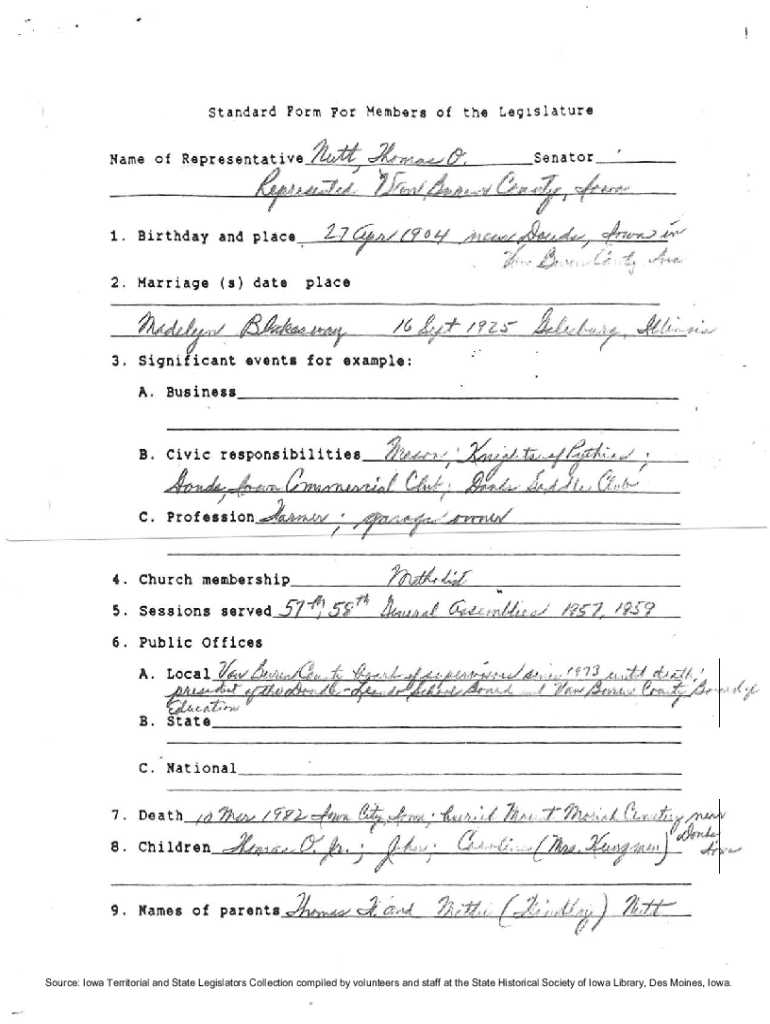 Standard Form For Members of the Legislature
Name of Representative Nutt, Thomas O. Senator
Represented Van Buren County, Iowa
1. Birthday and place 27 Apr 1904 near Douds, Iowa in
Van Buren County Iowa
2. Marriage (s) date place
Madelyn 16 Sept 1925 Galesburg, Illinois
3. Significant events for example:
A. Business
B. Civic responsibilities Mason; Knights of Pythias;
Douds, Iowa Commercial Club; Douds Saddle Club
C. Profession Farmer; garage owner
4. Church membership Methodist
5. Sessions served 57th, 58th General Assemblies 1957, 1959
6. Public Offices
A. Local Van Buren County board of supervisors since 1973 until death;
president of the Douds-Leando School Board and Van Buren County Board of
Education
B. State
C. National
7. Death 10 Mar 1982 Iowa City, Iowa; buried Mount Moriah Cemetery near
Douds
Iowa
8. Children Thomas O. Jr.; John; (Mrs.
9. Names of parents Thomas F. and (Findlay) Nutt
Source: Iowa Territorial and State Legislators Collection compiled by volunteers and staff at the State Historical Society of Iowa Library, Des Moines, Iowa.